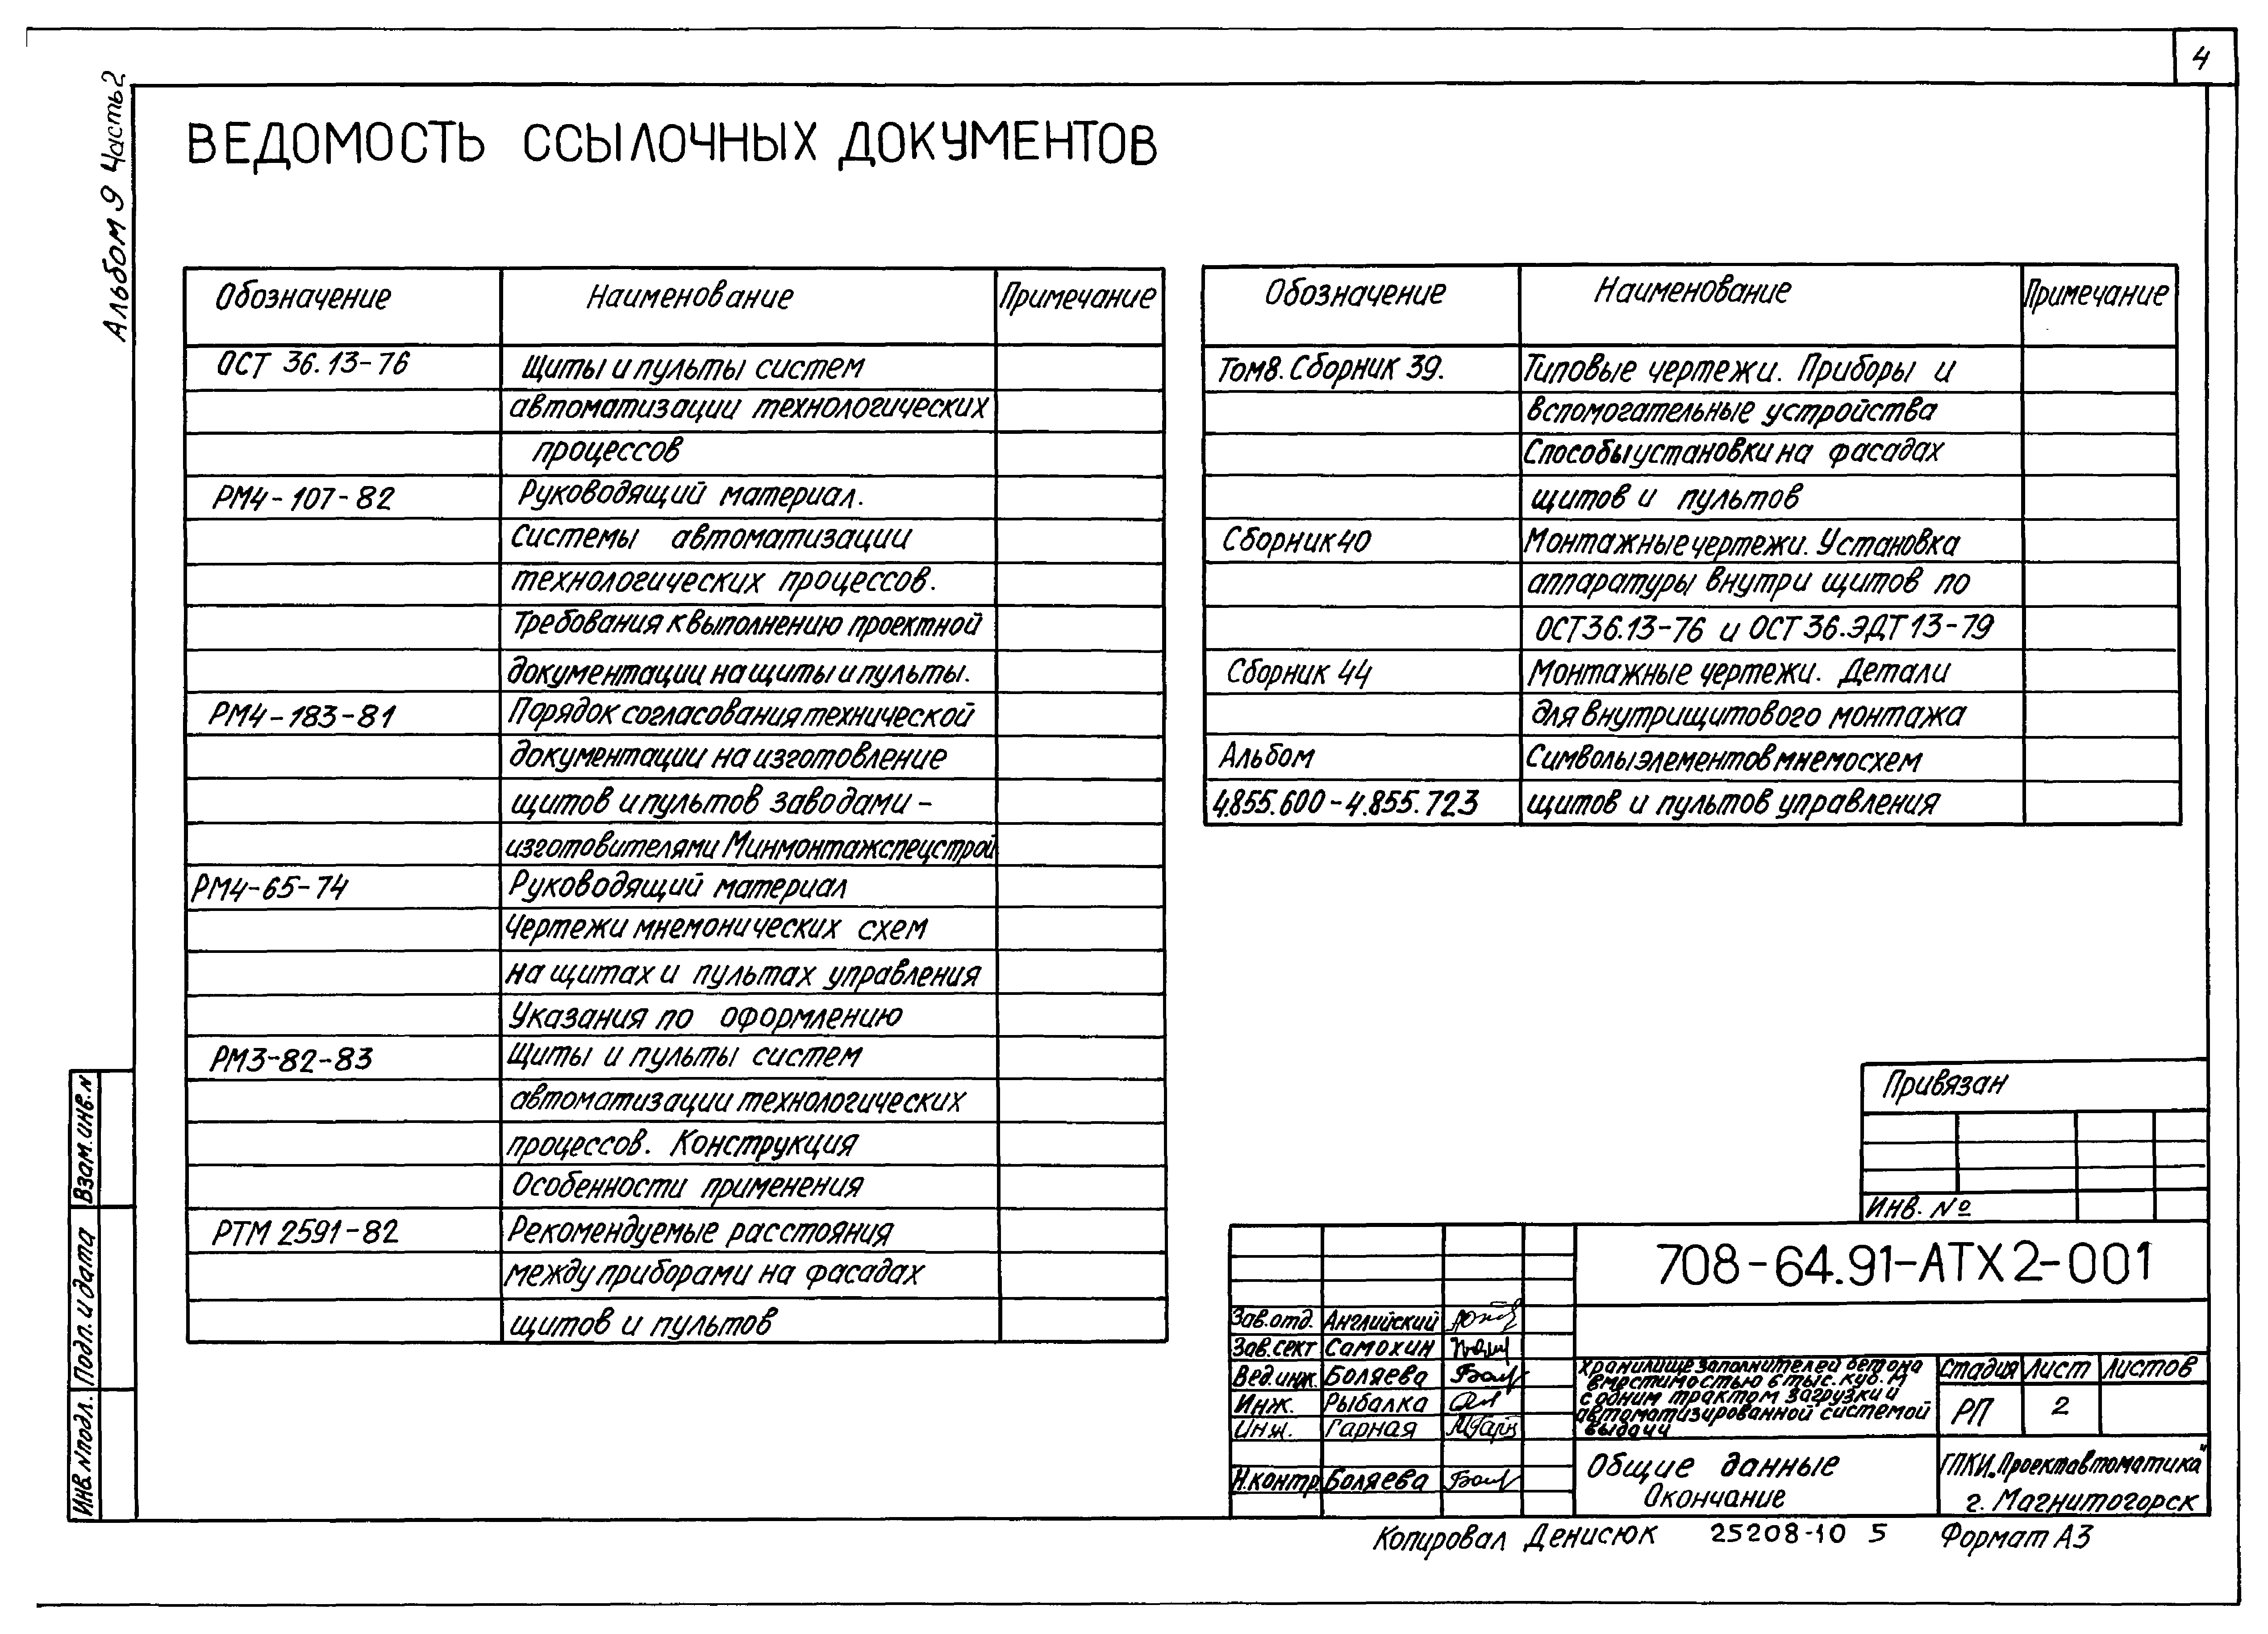 4
Альбом 9 Часть 2
ВЕДОМОСТЬ ССЫЛОЧНЫХ ДОКУМЕНТОВ
Обозначение Наименование Примечание
ОСТ 36.13-76 Щиты и пульты систем
автоматизации технологических
процессов
РМ4-107-82 Руководящий материал.
Системы автоматизации
технологических процессов.
Требования к выполнению проектной
документации на щиты и пульты.
РМ4-183-81 Порядок согласования технической
документации на изготовление
щитов и пультов заводами-
изготовителями Минмонтажспецстрой
РМ4-65-74 Руководящий материал
Чертежи мнемонических схем
на щитах и пультах управления
Указания по оформлению
РМ3-82-83 Щиты и пульты систем
автоматизации технологических
процессов. Конструкция
Особенности применения
РТМ 2591-82 Рекомендуемые расстояния
между приборами на фасадах
щитов и пультов
Обозначение Наименование Примечание
Том8. Сборник 39. Типовые чертежи. Приборы и
вспомогательные устройства
Способы установки на фасадах
щитов и пультов
Сборник 40 Монтажные чертежи. Установка
аппаратуры внутри щитов по
ОСТ36.13-76 и ОСТ 36.ЭДТ13-79
Сборник 44 Монтажные чертежи. Детали
для внутрищитового монтажа
Альбом Символы элементов мнемосхем
4.855.600-4.855.723 щитов и пультов управления
Привязан
Инв. №
708-64.91-АТХ2-001
Зав.отд. Английский
Зав.сект Самохин
Вед.инж. Боляева
Инж. Рыбалка
Инж. Гарная
Н.контр. Боляева
Хранилище заполнителей бетона
вместимостью 6 тыс. куб. м
с одним трактом загрузки и
автоматизированной системой
выдачи
Стадия Лист Листов
РП 2
Общие данные
Окончание
ГПКИ „Проектавтоматика"
г. Магнитогорск
Взам.инв.N
Подп. и дата
Инв.Nподл.
Копировал Денисюк 25208-10 5 Формат А3